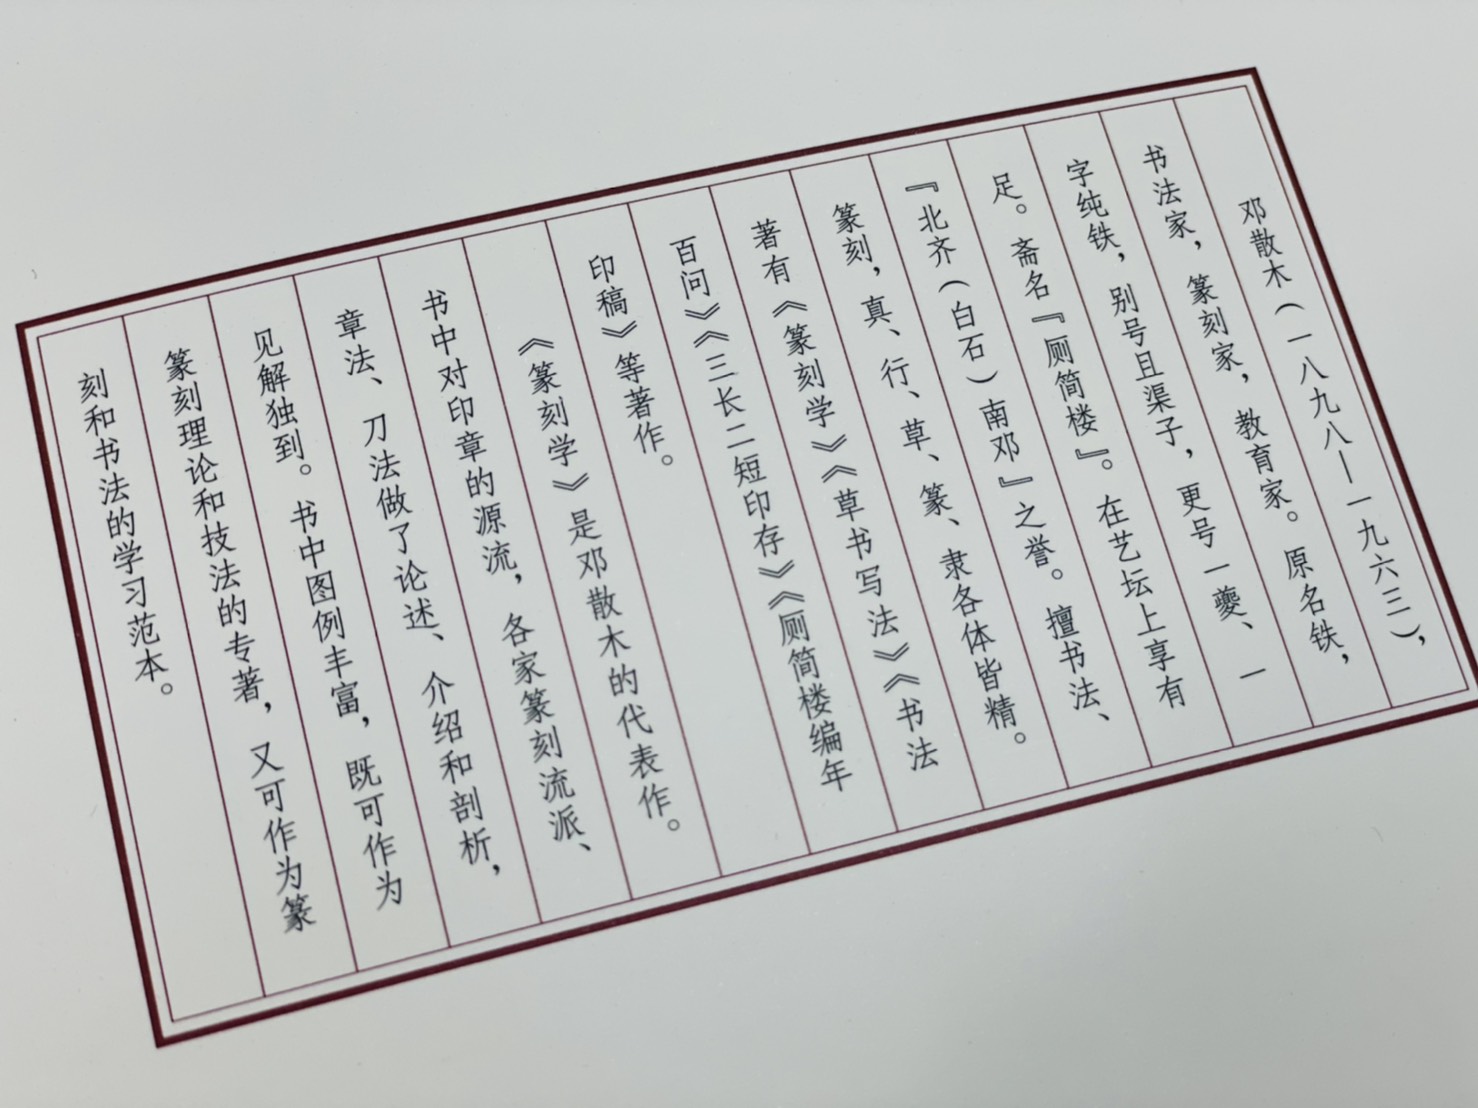 邓散木（一八九八—一九六三），
书法家，篆刻家，教育家。原名铁，
字纯铁，别号且渠子，更号一夔、一
足。斋名『厕简楼』。在艺坛上享有
『北齐（白石）南邓』之誉。擅书法、
篆刻，真、行、草、篆、隶各体皆精。
著有《篆刻学》《草书写法》《书法
百问》《三长二短印存》《厕简楼编年
印稿》等著作。
《篆刻学》是邓散木的代表作。
书中对印章的源流，各家篆刻流派、
章法、刀法做了论述、介绍和剖析，
见解独到。书中图例丰富，既可作为
篆刻理论和技法的专著，又可作为篆
刻和书法的学习范本。